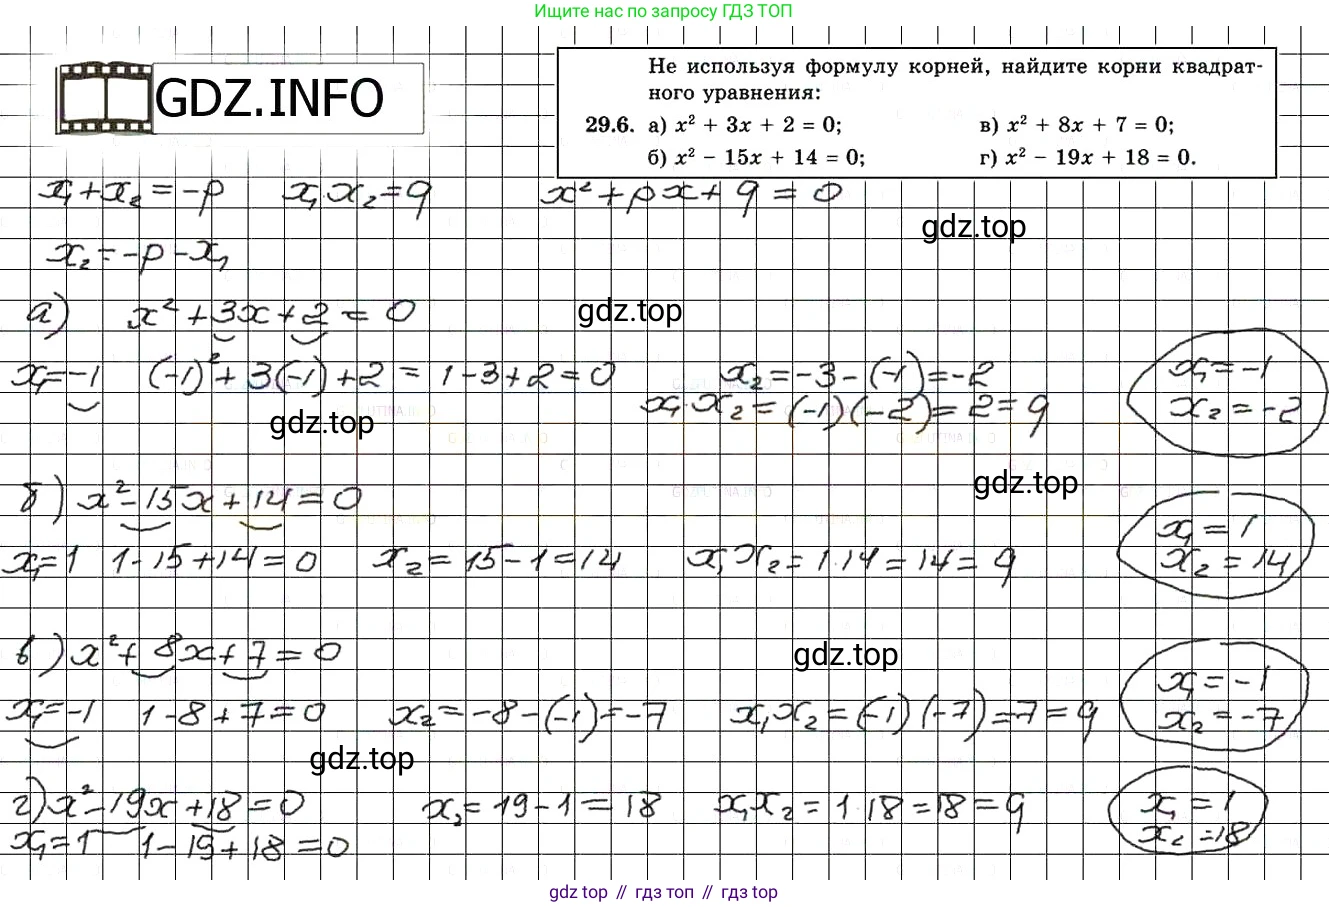 Ищите нас по запросу ГДЗ ТОП
GDZ.INFO
Не используя формулу корней, найдите корни квадрат-
ного уравнения:
29.6. а) x² + 3x + 2 = 0; в) x² + 8x + 7 = 0;
б) x² − 15x + 14 = 0; г) x² − 19x + 18 = 0.
x₁ + x₂ = −p x₁ x₂ = q x² + px + q = 0
gdz.top
x₂ = −p − x₁
а) x² + 3x + 2 = 0
gdz.top
x₁ = −1 (−1)² + 3(−1) + 2 = 1 − 3 + 2 = 0 x₂ = −3 − (−1) = −2
x₁ · x₂ = (−1)(−2) = 2 = q
x₁ = −1
x₂ = −2
gdz.top
б) x² − 15x + 14 = 0
gdz.top
x₁ = 1 1 − 15 + 14 = 0 x₂ = 15 − 1 = 14 x₁ x₂ = 1·14 = 14 = q
x₁ = 1
x₂ = 14
в) x² + 8x + 7 = 0
gdz.top
x₁ = −1 1 − 8 + 7 = 0 x₂ = −8 − (−1) = −7 x₁ x₂ = (−1)(−7) = 7 = q
x₁ = −1
x₂ = −7
gdz.top
г) x² − 19x + 18 = 0 x₂ = 19 − 1 = 18 x₁ x₂ = 1·18 = 18 = q
x₁ = 1 1 − 19 + 18 = 0
x₁ = 1
x₂ = 18
gdz top // гдз топ // гдз top